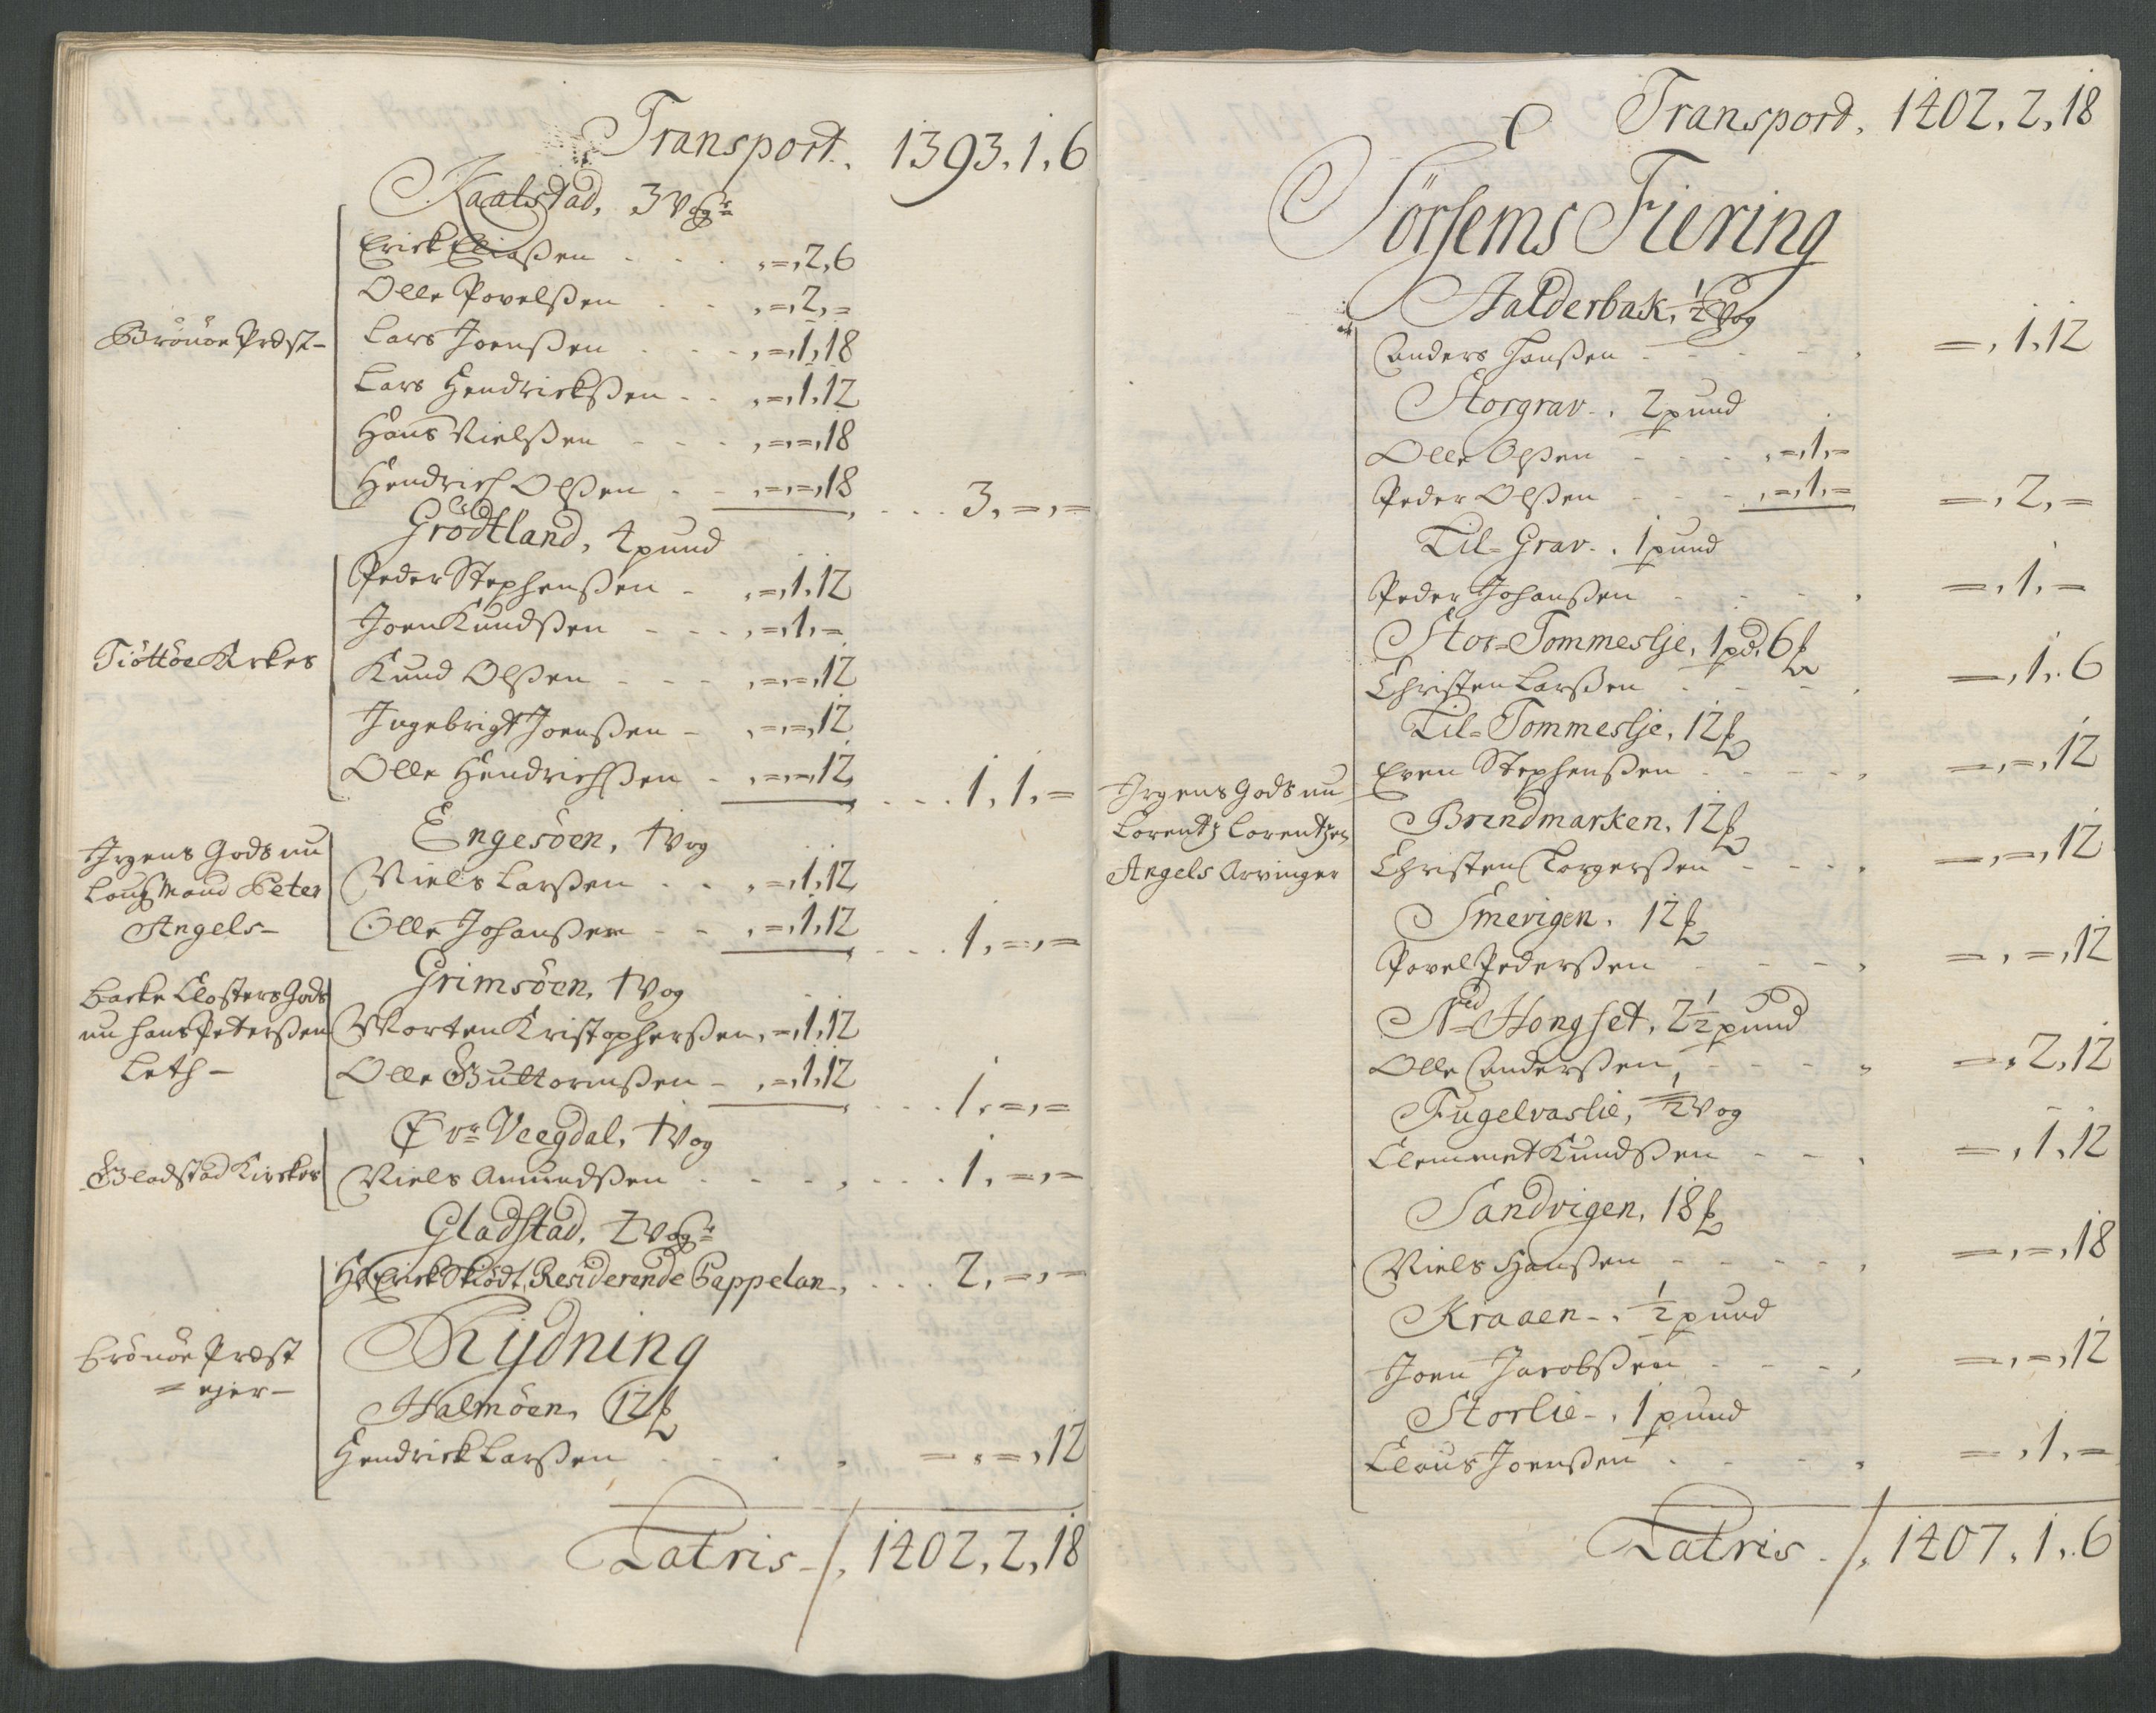 Transport. 1393.1.6
Kaalstad, 3 Vogr
Erick Eliaßen - - - ,=,2,6
Olle Povelßen - - ,=,2,=
Brönöe Præst-
Lars Joenßen - - - ,=,1,18
Lars Hendrickßen - - ,=,1,12
Hans Nielßen - - - ,=,=,18
Hendrich Olßen - - ,=,=,18 . . . 3,=,=
Grödtland, 4 pund
Peder Stephenßen - ,=,1,12
Joen Knudßen - - - ,=,1,=
Tiöttöe Kirkes
Knud Olßen - - - ,=,=,12
Ingebrigt Joenßen - ,=,=,12
Olle Hendrichßen - ,=,=,12 . . . 1,1,=
Engesöen, 1 Vog
Irgens Gods nu
Laugmand Peter
Angels-
Niels Larßen - - ,=,1,12
Olle Johanßen - - ,=,1,12 . . . 1,=,=
Grimsöen, 1 Vog
Backe Closters Gods
nu Hans Peterßen
Leth-
Morten Kristopherßen, =,1,12
Olle Guttormßen - ,=,1,12 . . . 1,=,=
Øvr Veegdal, 1 Vog
Gladstad Kirkes
Niels Amundßen - - - , . . . 1,=,=
Gladstad, 2 Vogr
Hr Erick Skiödt, Residerende Cappelan, . . . 2,=,=
Rydning
Brönöe Præst
= ejer-
Halmöen, 12 ℔
Hendrick Larßen . . . , =,=,12
Latris -/, 1402,2,18
Transpord, 1402,2,18
Sörsems Fiering
Halderbak, 1/2 Vog
Anders Hanßen - - - - , =,1,12
Storgrav-, 2 pund
Olle Olßen - - - ,=,1,=
Peder Olßen - - - ,=,1,= =,2,=
Lil=Grav-, 1 pund
Peder Johanßen - - - , =,1,=
Stor=Tommeslje, 1 pd. 6 ℔
Christen Larßen - - - , =,1,6
Lil=Tommeslje, 12 ℔
Even Stephenßen - - - - , =,=,12
Irgens Gods nu
Lorentz Lorentzen
Angels Arvinger
Brendmarken, 12 ℔
Christen Torgerßen - - - , =,=,12
Smevigen, 12 ℔
Povel Pederßen - - - , =,=,12
Ned=Hongset, 2 1/2 pund
Olle Anderßen, - - - , =,2,12
Fugelvaslie, 1/2 Vog
Clemmet Knudßen - - , =,1,12
Sandvigen, 18 ℔
Niels Hanßen - - - - , =,=,18
Kraaen-, 1/2 pund
Joen Jacobßen - - - , =,=,12
Storlie-, 1 pund
Claus Joenßen . - - , =,1,=
Latris -/, 1407,1,6